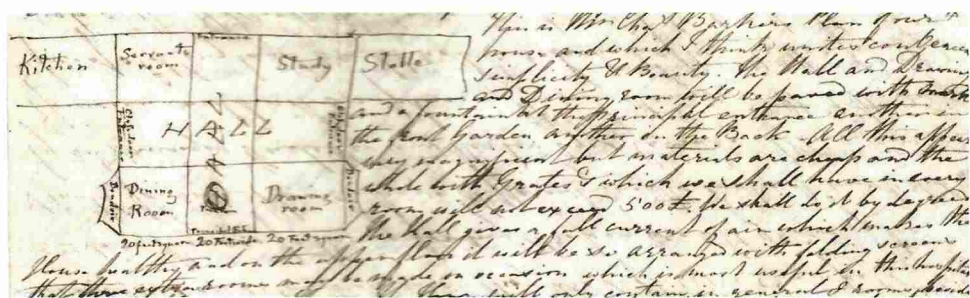 Entrance
Kitchen
Servants room
Study
Stable
HALL
HALL
Dining Room
Drawing room
20 feet square 20 Feet wide 20 Feet square
This is Mr Chas Barkers Plan of our
house and which I think unites
simplicity & Beauty. The Hall and Drawing
and Dining room will be paved with
and a fountain at the principal entrance another in
the front Garden another in the Back. All this
very magnificent but materials are cheap and the
whole with Grates which we shall have in every
room will not exceed 500£. We shall do it by degrees
the Hall gives a full current of air which makes the
House healthy and on the upper floor it will be so arranged with folding screens
that three extra rooms may be made on occasion which is most useful in this
will only contain in general